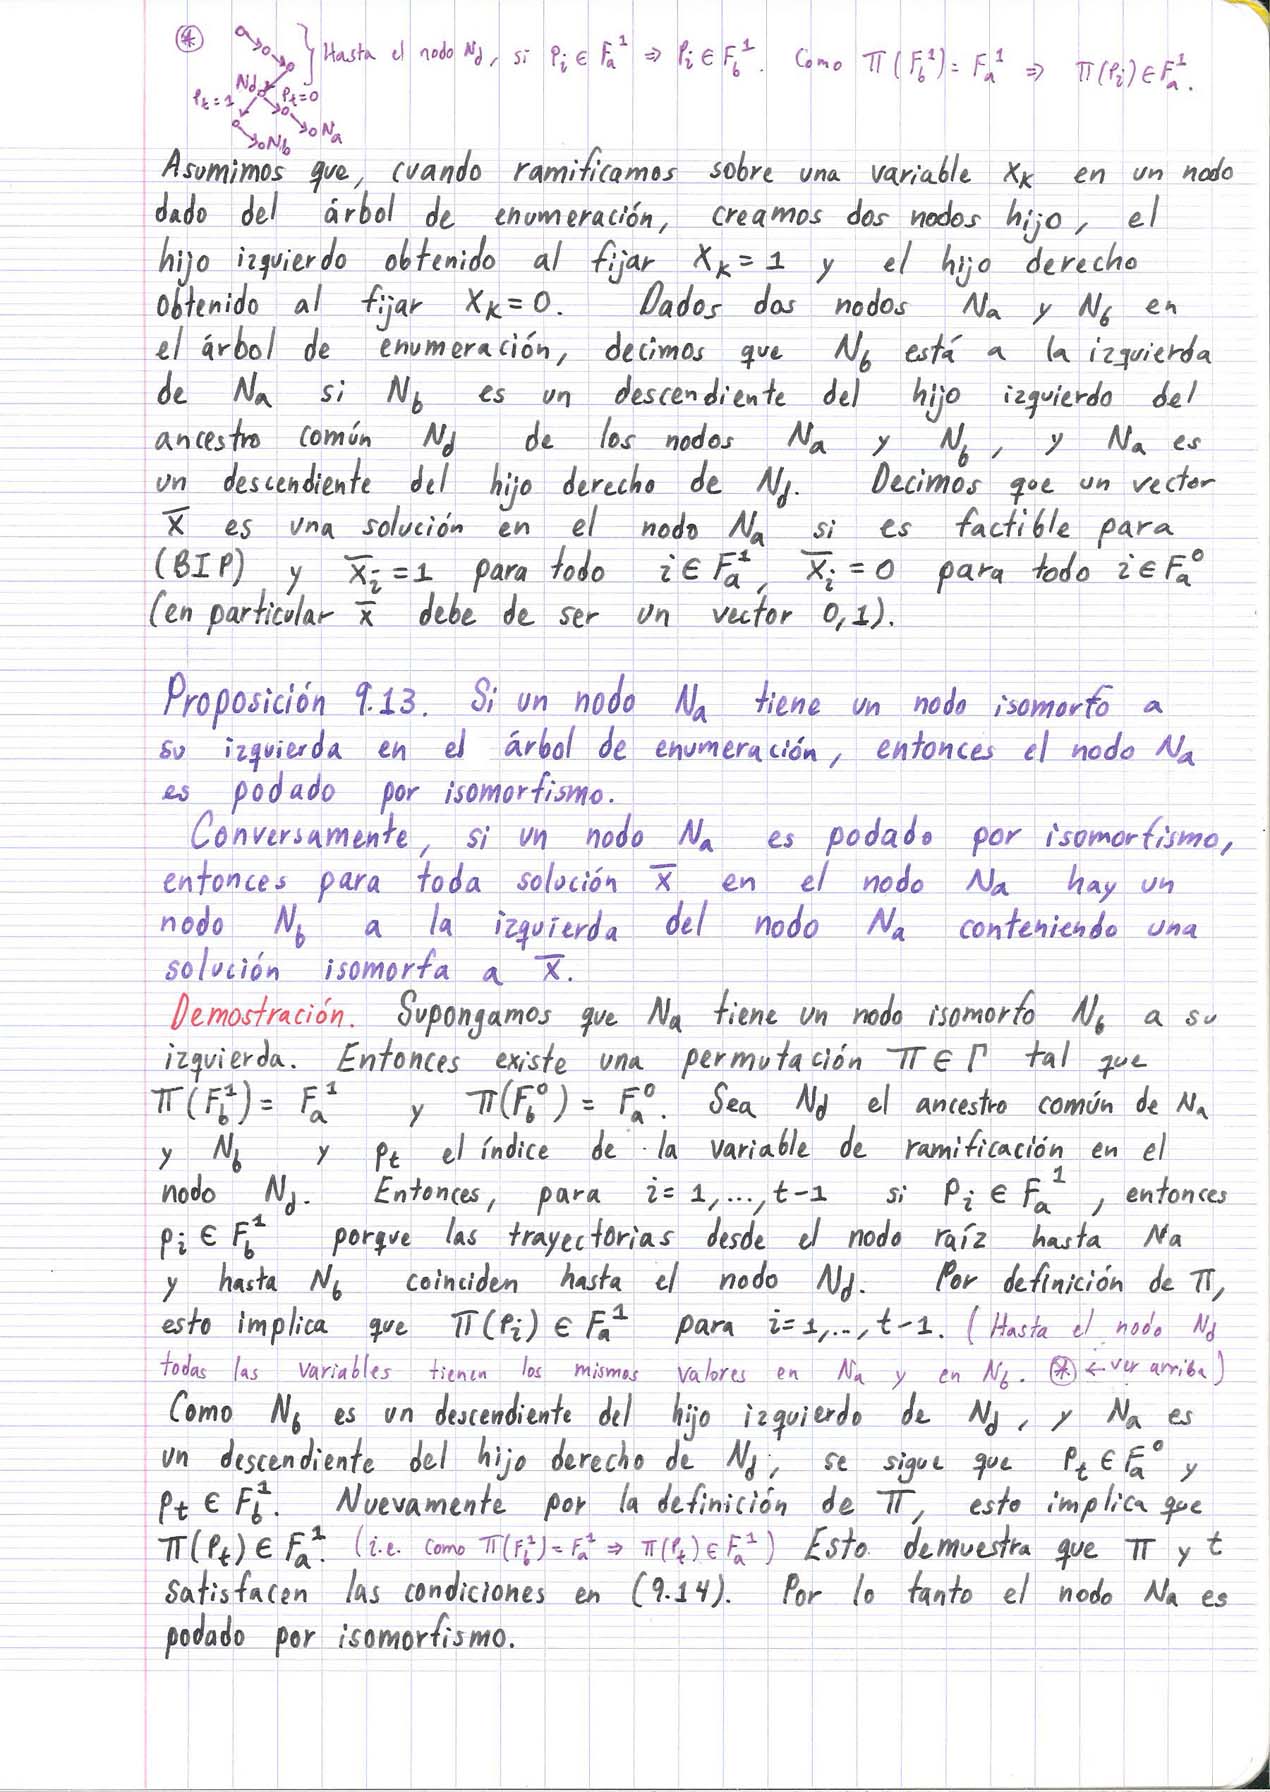 ⊛ Hasta el nodo N_d, si p_i ∈ F_a^1 ⇒ p_i ∈ F_b^1. Como π(F_b^1) = F_a^1 ⇒ π(p_i) ∈ F_a^1.
N_d
p_t = 1 p_t = 0
N_a
N_b
Asumimos que, cuando ramificamos sobre una variable x_k en un nodo
dado del árbol de enumeración, creamos dos nodos hijo, el
hijo izquierdo obtenido al fijar x_k = 1 y el hijo derecho
obtenido al fijar x_k = 0. Dados dos nodos N_a y N_b en
el árbol de enumeración, decimos que N_b está a la izquierda
de N_a si N_b es un descendiente del hijo izquierdo del
ancestro común N_d de los nodos N_a y N_b, y N_a es
un descendiente del hijo derecho de N_d. Decimos que un vector
x̅ es una solución en el nodo N_a si es factible para
(BIP) y x̅_i = 1 para todo i ∈ F_a^1, x̅_i = 0 para todo i ∈ F_a^0
(en particular x̅ debe de ser un vector 0,1).
Proposición 9.13. Si un nodo N_a tiene un nodo isomorfo a
su izquierda en el árbol de enumeración, entonces el nodo N_a
es podado por isomorfismo.
Conversamente, si un nodo N_a es podado por isomorfismo,
entonces para toda solución x̅ en el nodo N_a hay un
nodo N_b a la izquierda del nodo N_a conteniendo una
solución isomorfa a x̅.
Demostración. Supongamos que N_a tiene un nodo isomorfo N_b a su
izquierda. Entonces existe una permutación π ∈ Γ tal que
π(F_b^1) = F_a^1 y π(F_b^0) = F_a^0. Sea N_d el ancestro común de N_a
y N_b y p_t el índice de la variable de ramificación en el
nodo N_d. Entonces, para i = 1,...,t-1 si p_i ∈ F_a^1, entonces
p_i ∈ F_b^1 porque las trayectorias desde el nodo raíz hasta N_a
y hasta N_b coinciden hasta el nodo N_d. Por definición de π,
esto implica que π(p_i) ∈ F_a^1 para i = 1,..,t-1. (Hasta el nodo N_d
todas las variables tienen los mismos valores en N_a y en N_b. ⊛ ← ver arriba)
Como N_b es un descendiente del hijo izquierdo de N_d, y N_a es
un descendiente del hijo derecho de N_d, se sigue que p_t ∈ F_a^0 y
p_t ∈ F_b^1. Nuevamente por la definición de π, esto implica que
π(p_t) ∈ F_a^1. (i.e. como π(F_b^1) = F_a^1 ⇒ π(p_t) ∈ F_a^1) Esto demuestra que π y t
satisfacen las condiciones en (9.14). Por lo tanto el nodo N_a es
podado por isomorfismo.